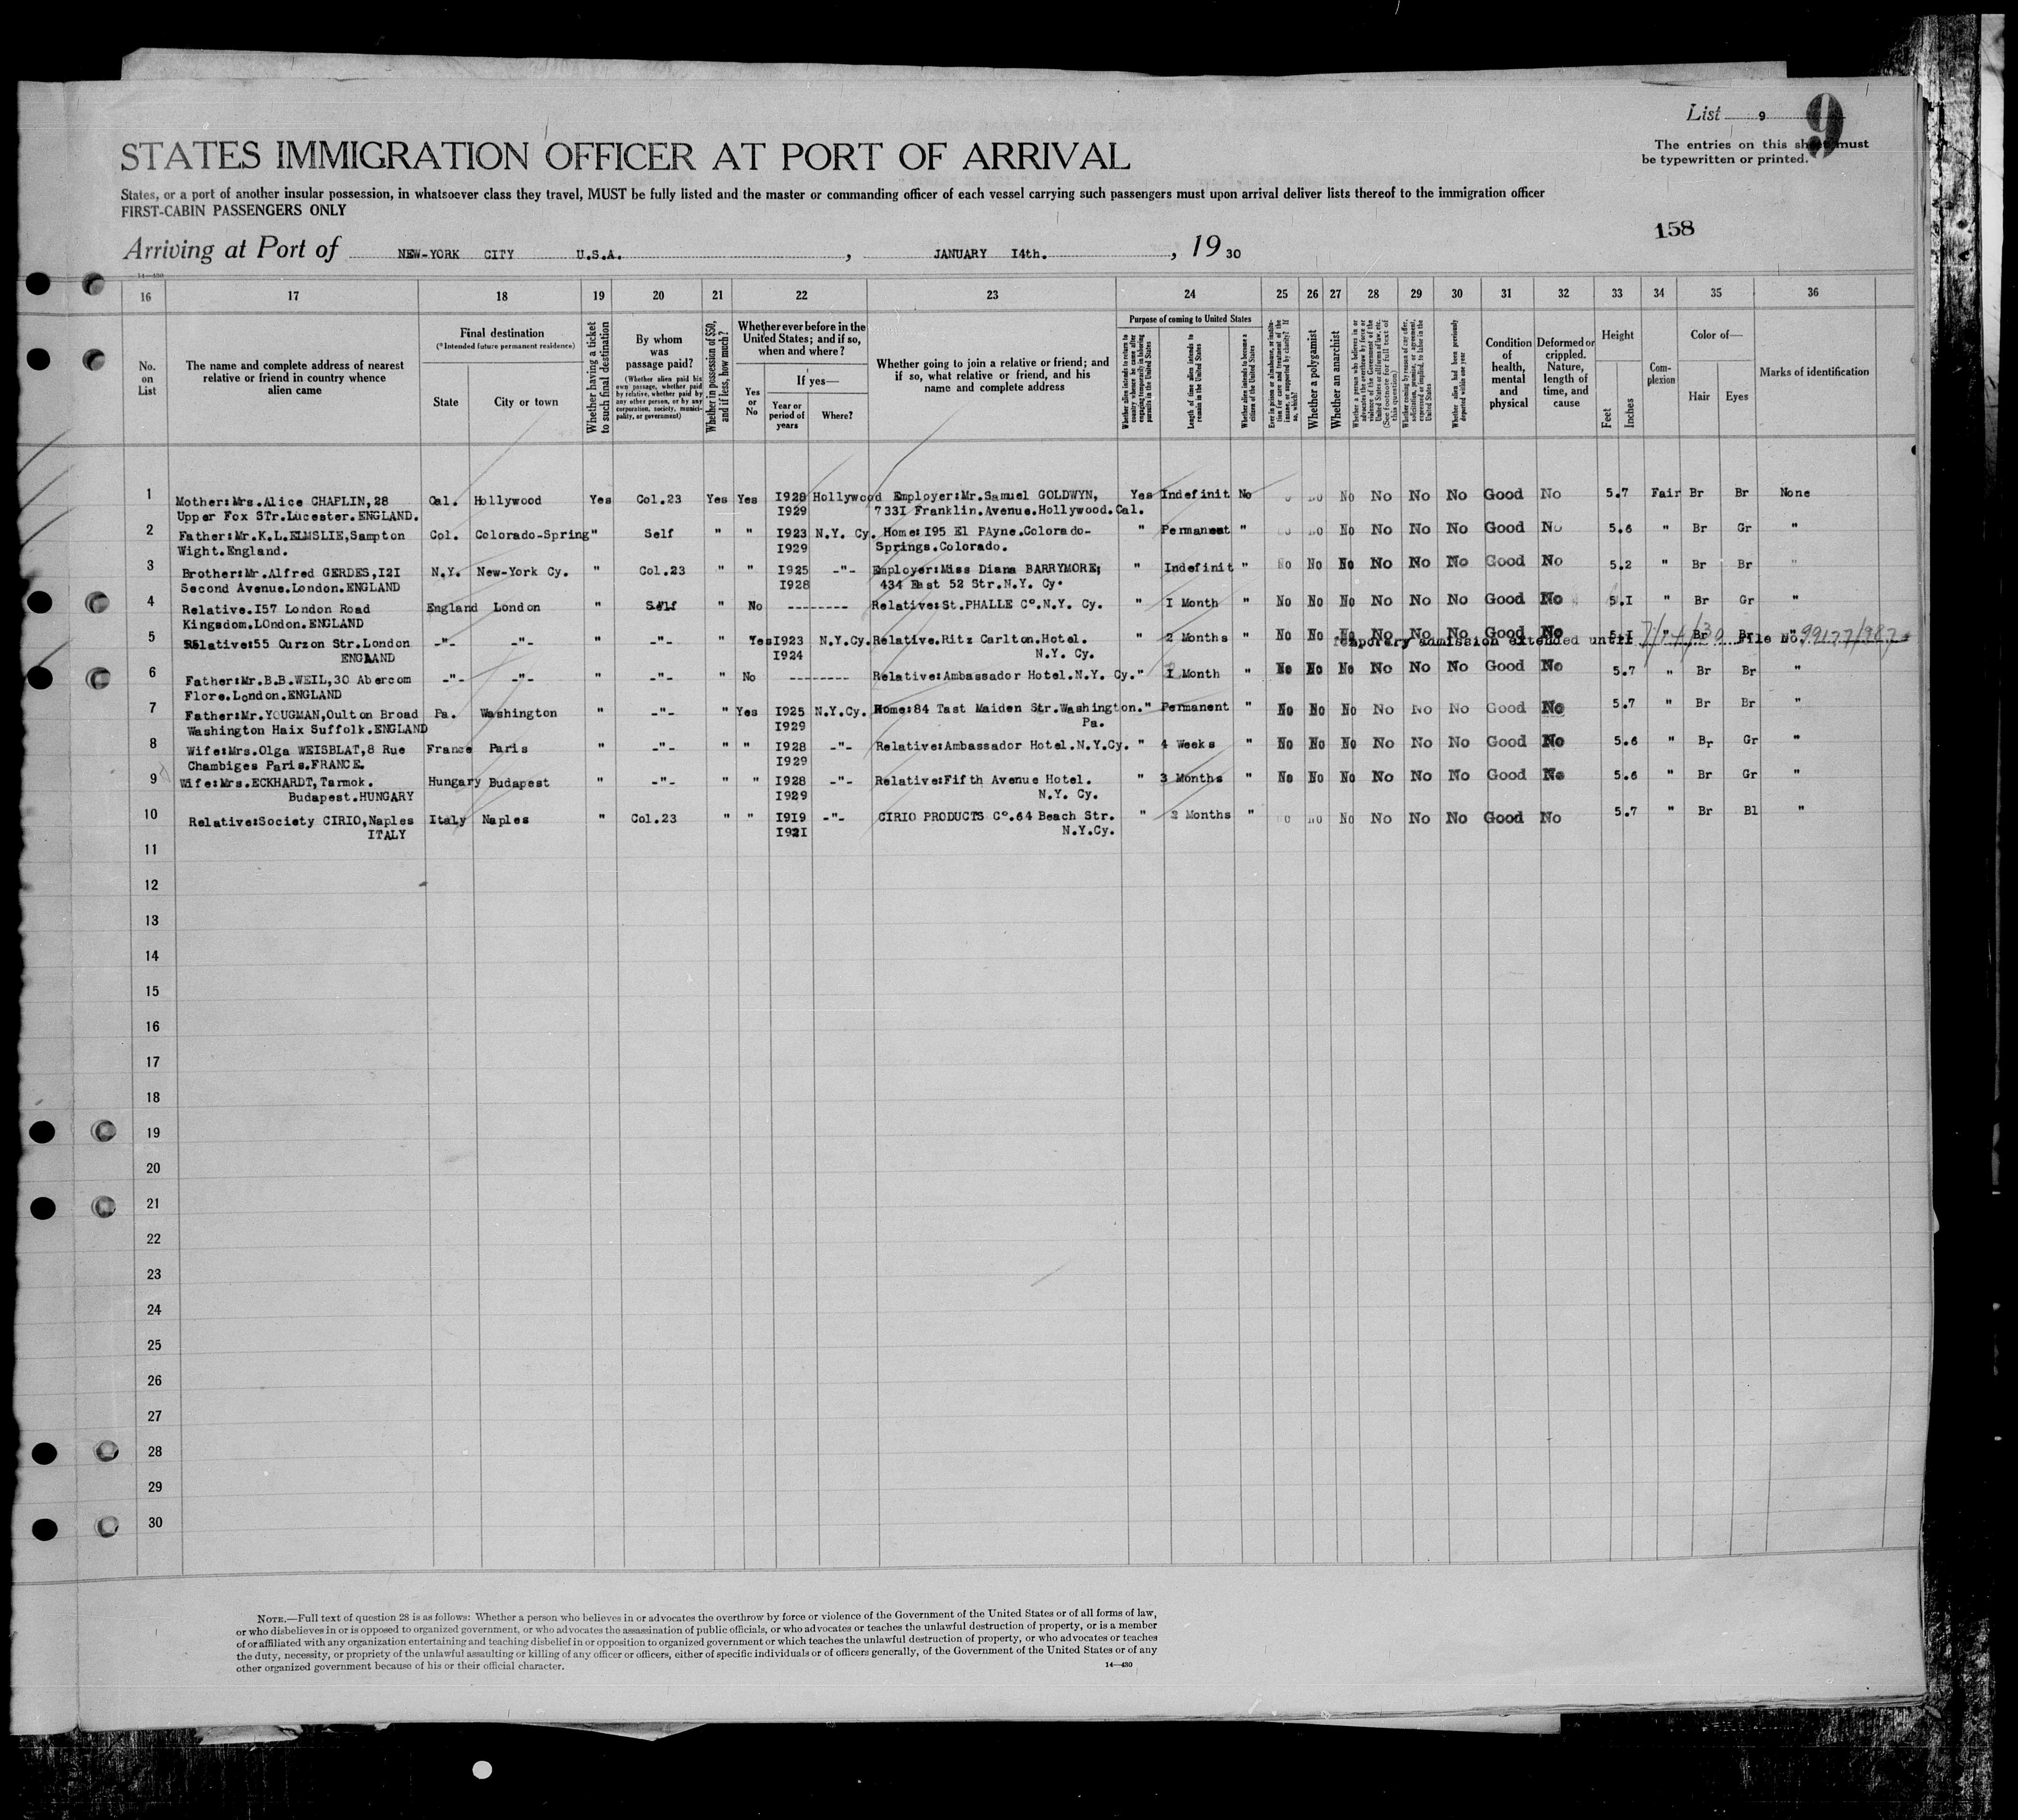 List 9
9
The entries on this sheet must
be typewritten or printed.
STATES IMMIGRATION OFFICER AT PORT OF ARRIVAL
States, or a port of another insular possession, in whatsoever class they travel, MUST be fully listed and the master or commanding officer of each vessel carrying such passengers must upon arrival deliver lists thereof to the immigration officer
FIRST-CABIN PASSENGERS ONLY
158
Arriving at Port of NEW-YORK CITY U.S.A. , JANUARY I4th. , 19 30
14—430
16 17 18 19 20 21 22 23 24 25 26 27 28 29 30 31 32 33 34 35 36
No. on List
The name and complete address of nearest relative or friend in country whence alien came
Final destination
(*Intended future permanent residence)
State
City or town
Whether having a ticket to such final destination
By whom was passage paid?
(Whether alien paid his own passage, whether paid by relative, whether paid by any other person, or by any corporation, society, municipality, or government)
Whether in possession of $50, and if less, how much?
Whether ever before in the United States; and if so, when and where?
Yes or No
If yes—
Year or period of years
Where?
Whether going to join a relative or friend; and if so, what relative or friend, and his name and complete address
Purpose of coming to United States
Whether alien intends to return to country whence he came after engaging temporarily in laboring pursuits in the United States
Length of time alien intends to remain in the United States
Whether alien intends to become a citizen of the United States
Ever in prison or almshouse, or institution for care and treatment of the insane, or supported by charity? If so, which?
Whether a polygamist
Whether an anarchist
Whether a person who believes in or advocates the overthrow by force or violence of the Government of the United States or all forms of law, etc. (See footnote for full text of this question)
Whether coming by reason of any offer, solicitation, promise, or agreement, expressed or implied, to labor in the United States
Whether alien had been previously deported within one year
Condition of health, mental and physical
Deformed or crippled. Nature, length of time, and cause
Height
Feet
Inches
Complexion
Color of—
Hair
Eyes
Marks of identification
1 Mother:Mrs.Alice CHAPLIN,28 Cal. Hollywood Yes Col.23 Yes Yes I928 Hollywood Employer:Mr.Samuel GOLDWYN, Yes Indefinit No No No No No No Good No 5.7 Fair Br Br None
Upper Fox STr.Lucester.ENGLAND. I929 733I Franklin.Avenue.Hollywood.Cal.
2 Father:Mr.K.L.ELMSLIE,Sampton Col. Colorado-Spring " Self " " I923 N.Y. Cy. Home:I95 El PAyne.Colorado- " Permanent " No No No No No Good No 5.6 " Br Gr "
Wight.England. I929 Springs.Colorado.
3 Brother:Mr.Alfred GERDES,I2I N.Y. New-York Cy. " Col.23 " " I925 -"- Employer:Miss Diana BARRYMORE; " Indefinit " No No No No No No Good No 5.2 " Br Br "
Second Avenue.London.ENGLAND I928 434 East 52 Str.N.Y. Cy.
4 Relative.I57 London Road England London " Self " No -------- Relative:St.PHALLE C°.N.Y. Cy. " I Month " No No No No No No Good No 5.I " Br Gr "
Kingsdom.LOndon.ENGLAND
5 Relative:55 Curzon Str.London -"- -"- " -"- Yes I923 N.Y.Cy. Relative.Ritz Carlton.Hotel. " 2 Months " No No No No No No Good No 5.I " Br Br "
ENGLAND I924 N.Y. Cy.
Temporary admission extended until File No.
6 Father:Mr.B.B.WEIL,30 Abercom -"- -"- " -"- " No -------- Relative:Ambassador Hotel.N.Y. Cy. " I Month " No No No No No No Good No 5.7 " Br Br "
Flore.London.ENGLAND
7 Father:Mr.YOUGMAN,Oulton Broad Pa. Washington " -"- " Yes I925 N.Y.Cy. Home:84 Tast Maiden Str.Washington. " Permanent " No No No No No No Good No 5.7 " Br Br "
Washington Haix Suffolk.ENGLAND I929 Pa.
8 Wife:Mrs.Olga WEISBLAT,8 Rue France Paris " -"- " " I928 -"- Relative:Ambassador Hotel.N.Y.Cy. " 4 Weeks " No No No No No No Good No 5.6 " Br Gr "
Chambiges Paris.FRANCE. I929
9 Wife:Mrs.ECKHARDT,Tarmok. Hungary Budapest " -"- " " I928 -"- Relative:Fifth Avenue Hotel. " 3 Months " No No No No No No Good No 5.6 " Br Gr "
Budapest.HUNGARY I929 N.Y. Cy.
10 Relative:Society CIRIO,Naples Italy Naples " Col.23 " " I9I9 -"- CIRIO PRODUCTS C°.64 Beach Str. " Months " No No No No Good No 5.7 " Br Bl "
ITALY I92I N.Y.Cy.
11
12
13
14
15
16
17
18
19
20
21
22
23
24
25
26
27
28
29
30
NOTE.—Full text of question 28 is as follows: Whether a person who believes in or advocates the overthrow by force or violence of the Government of the United States or of all forms of law,
or who disbelieves in or is opposed to organized government, or who advocates the assassination of public officials, or who advocates or teaches the unlawful destruction of property, or is a member
of or affiliated with any organization entertaining and teaching disbelief in or opposition to organized government or which teaches the unlawful destruction of property, or who advocates or teaches
the duty, necessity, or propriety of the unlawful assaulting or killing of any officer or officers, either of specific individuals or of officers generally, of the Government of the United States or of any
other organized government because of his or their official character.
14—430